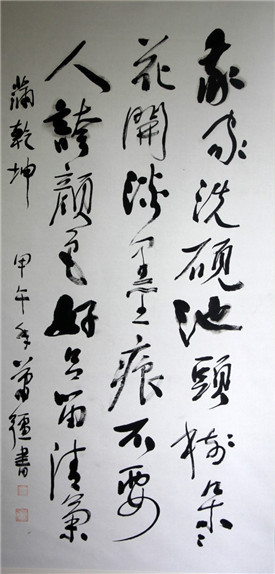 我家洗硯池頭樹朵〻
花開淡墨痕不要
人誇顏色好只留清氣
滿乾坤 甲午年 書